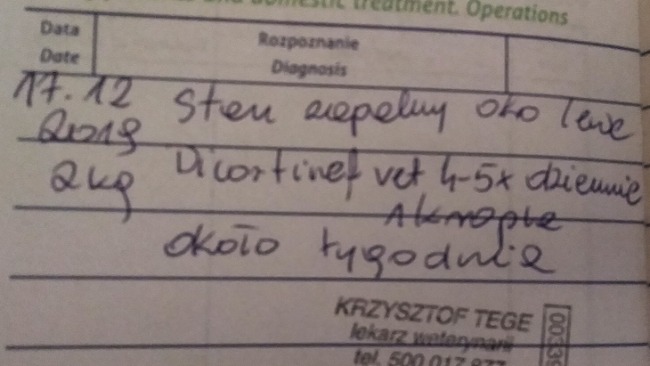 and domestic treatment. Operations
Data
Date
Rozpoznanie
Diagnosis
17.12
2019
2kg
Stan zapalny oko lewe
Dicortinef vet 4-5x dziennie
1 krople
około tygodnia
KRZYSZTOF TEGE
lekarz weterynarii
tel. 500 017 877